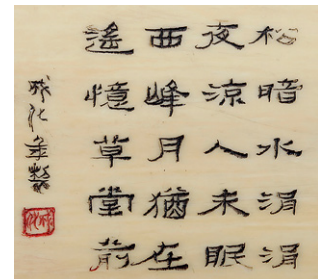 松暗水涓涓
夜涼人未眠
西峰月猶在
遙憶草堂前
成化年製